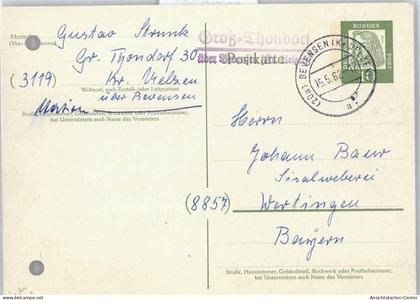 Absender:
Gustav Strunk
Gr. Thondorf 30
(3119) Kr. Uelzen
über Bevensen
Wohnort, auch Zustell- oder Leitpostamt
Straße, Hausnummer, Gebäudeteil, Stockwerk oder Postfachnummer,
bei Untermietern auch Name des Vermieters
Groß-Thondorf
über Bevensen
Postkarte
(20a) BEVENSEN (Kr UELZEN)
15.5.62
a
DEUTSCHE BUNDESPOST
10
Herrn
Johann Baur
Sisalweberei
(8857) Wertingen
Bayern
Straße, Hausnummer, Gebäudeteil, Stockwerk oder Postfachnummer,
bei Untermietern auch Name des Vermieters
© Ansichtskarten-Center.com